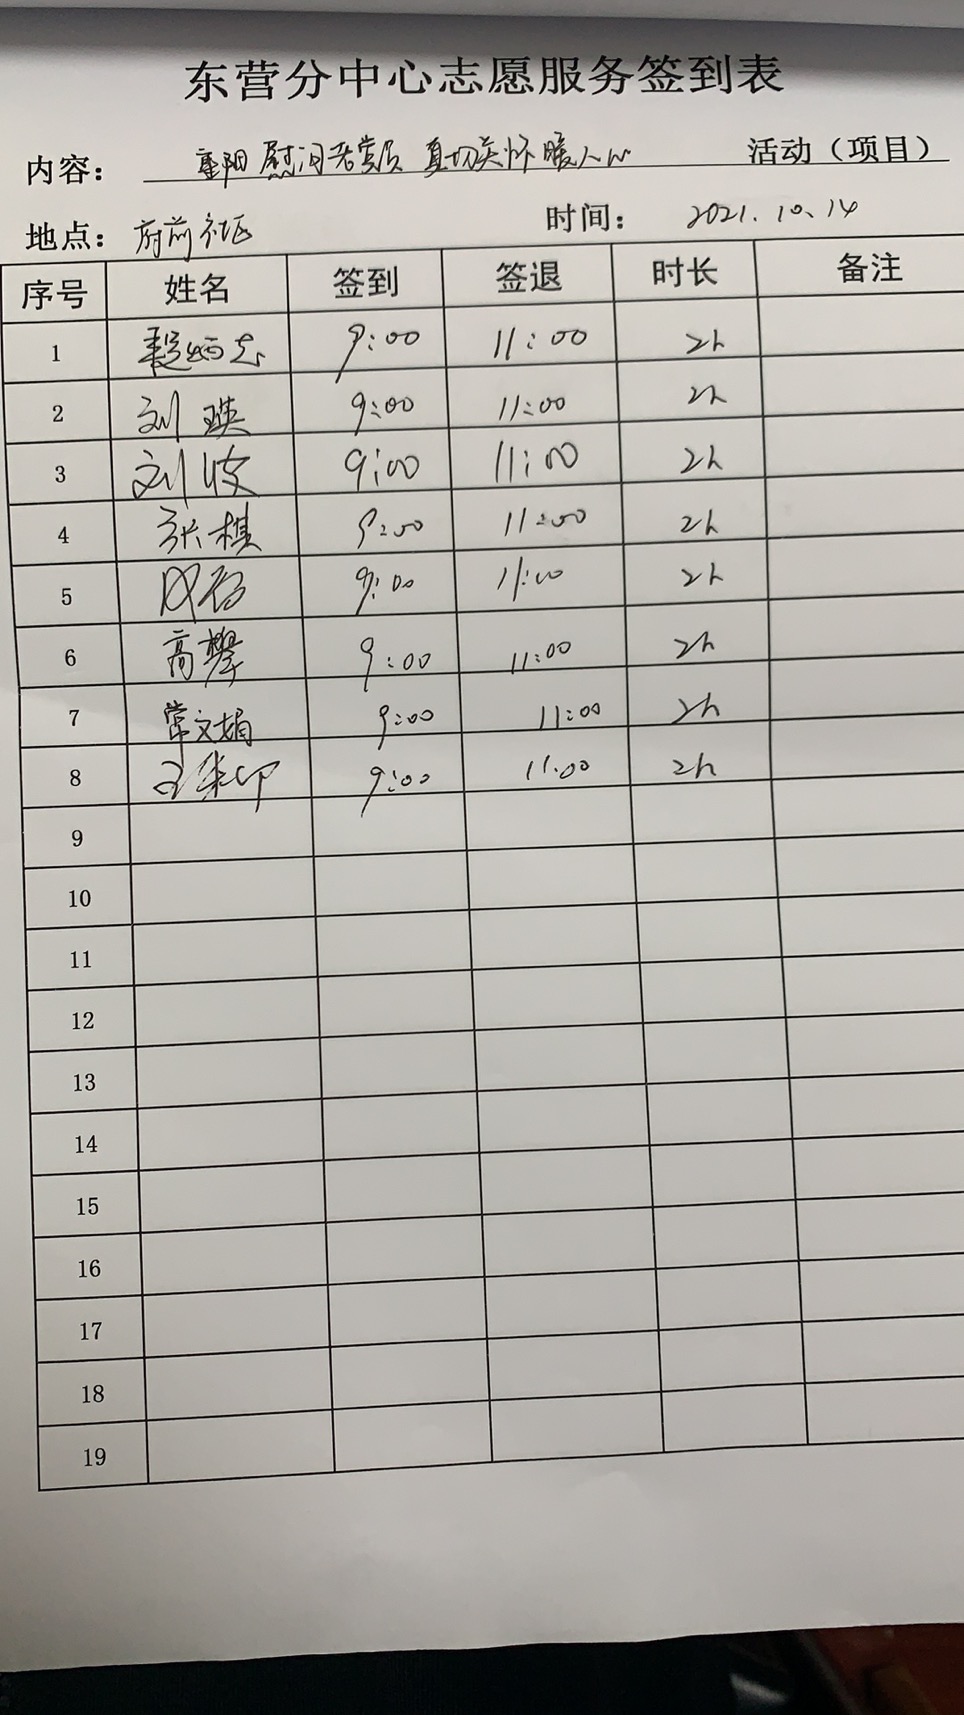 东营分中心志愿服务签到表
内容： 重阳慰问老党员 真切关怀暖人心 活动（项目）
地点： 府前社区 时间： 2021.10.14
序号 姓名 签到 签退 时长 备注
1 9:00 11:00 2h
2 刘瑛 9:00 11:00 2h
3 刘波 9:00 11:00 2h
4 张棋 9:00 11:00 2h
5 9:00 11:00 2h
6 高攀 9:00 11:00 2h
7 常文娟 9:00 11:00 2h
8 9:00 11:00 2h
9
10
11
12
13
14
15
16
17
18
19